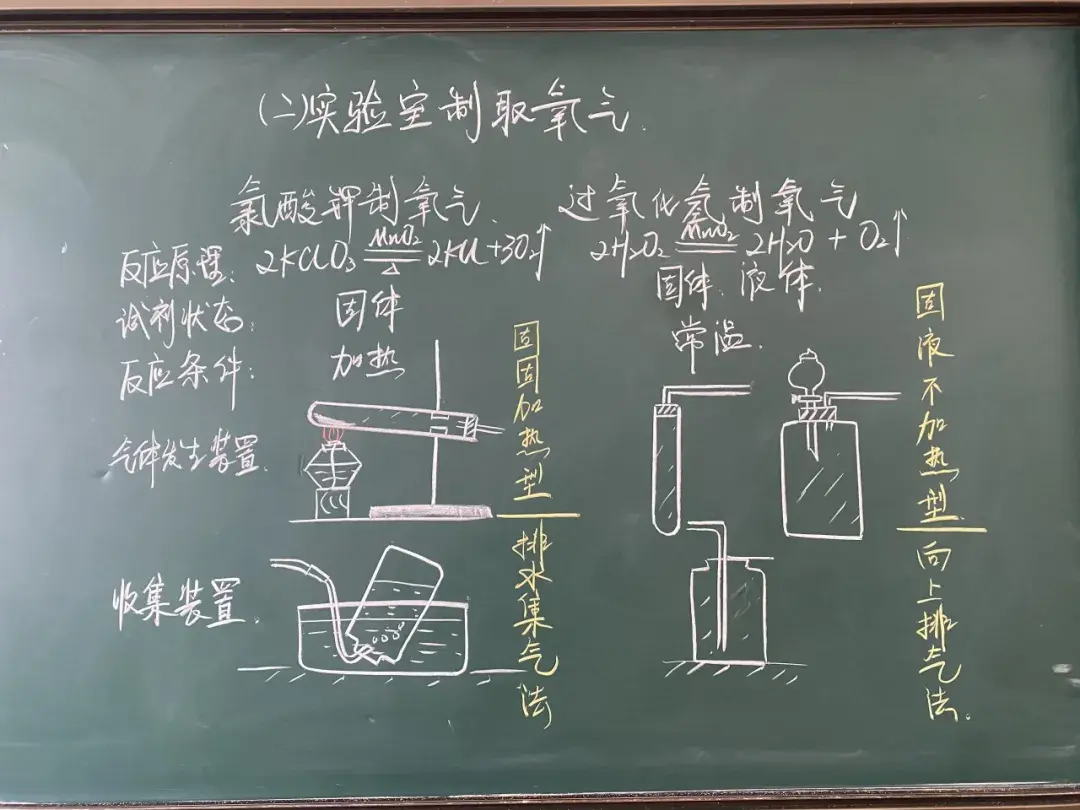 (二)实验室制取氧气.
氯酸钾制氧气. 过氧化氢制氧气
反应原理: 2KClO₃ MnO₂ △ 2KCl+3O₂↑ 2H₂O₂ MnO₂ 2H₂O + O₂↑
试剂状态: 固体 固体、液体.
反应条件: 加热 常温.
气体发生装置. 固固加热型 固液不加热型.
收集装置. 排水集气法 向上排气法.